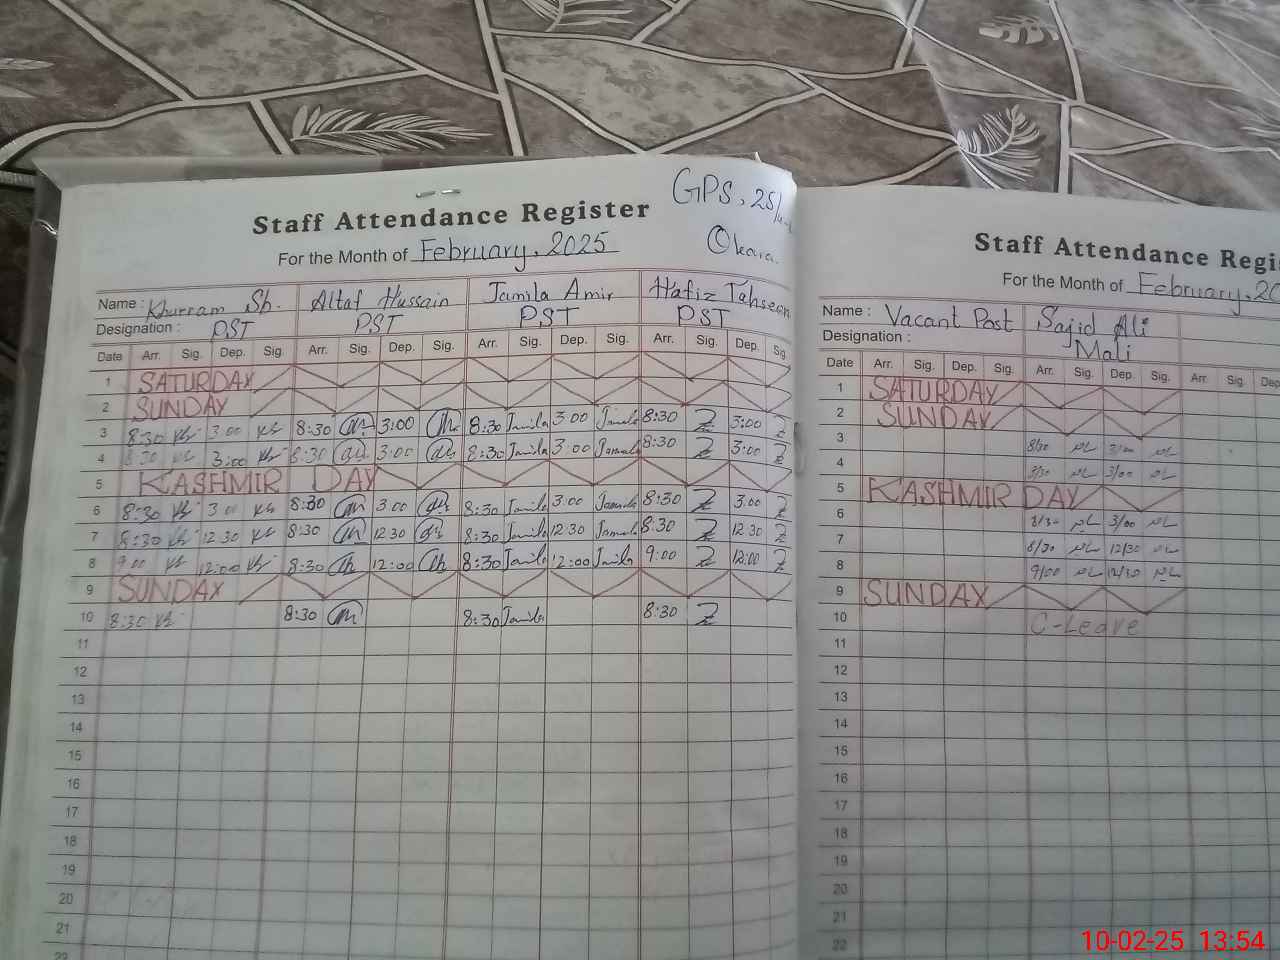 GPS, 25/
Okara.
Staff Attendance Register
For the Month of February, 2025
Name : Khurram Sh. Altaf Hussain Jamila Amir Hafiz Tahseen
Designation : PST PST PST PST
Date Arr. Sig. Dep. Sig. Arr. Sig. Dep. Sig. Arr. Sig. Dep. Sig. Arr. Sig. Dep. Sig.
1 SATURDAY
2 SUNDAY
3 8:30 3:00 8:30 3:00 8:30 Jamila 3:00 Jamila 8:30 3:00
4 8:30 3:00 8:30 3:00 8:30 Jamila 3:00 Jamila 8:30 3:00
5 KASHMIR DAY
6 8:30 3:00 8:30 3:00 8:30 Jamila 3:00 Jamila 8:30 3:00
7 8:30 12:30 8:30 12:30 8:30 Jamila 12:30 Jamila 8:30 12:30
8 9:00 12:00 8:30 12:00 8:30 Jamila 12:00 Jamila 9:00 12:00
9 SUNDAY
10 8:30 8:30 8:30 Jamila 8:30
11
12
13
14
15
16
17
18
19
20
21
Staff Attendance Regi
For the Month of February, 20
Name : Vacant Post Sajid Ali
Designation : Mali
Date Arr. Sig. Dep. Sig. Arr. Sig. Dep. Sig. Arr. Sig. Dep
1 SATURDAY
2 SUNDAY
3 8/30 3/00
4 8/30 3/00
5 KASHMIR DAY
6 8/30 3/00
7 8/30 12/30
8 9/00 12/30
9 SUNDAY
10 C-Leave
11
12
13
14
15
16
17
18
19
20
21
22
10-02-25 13:54